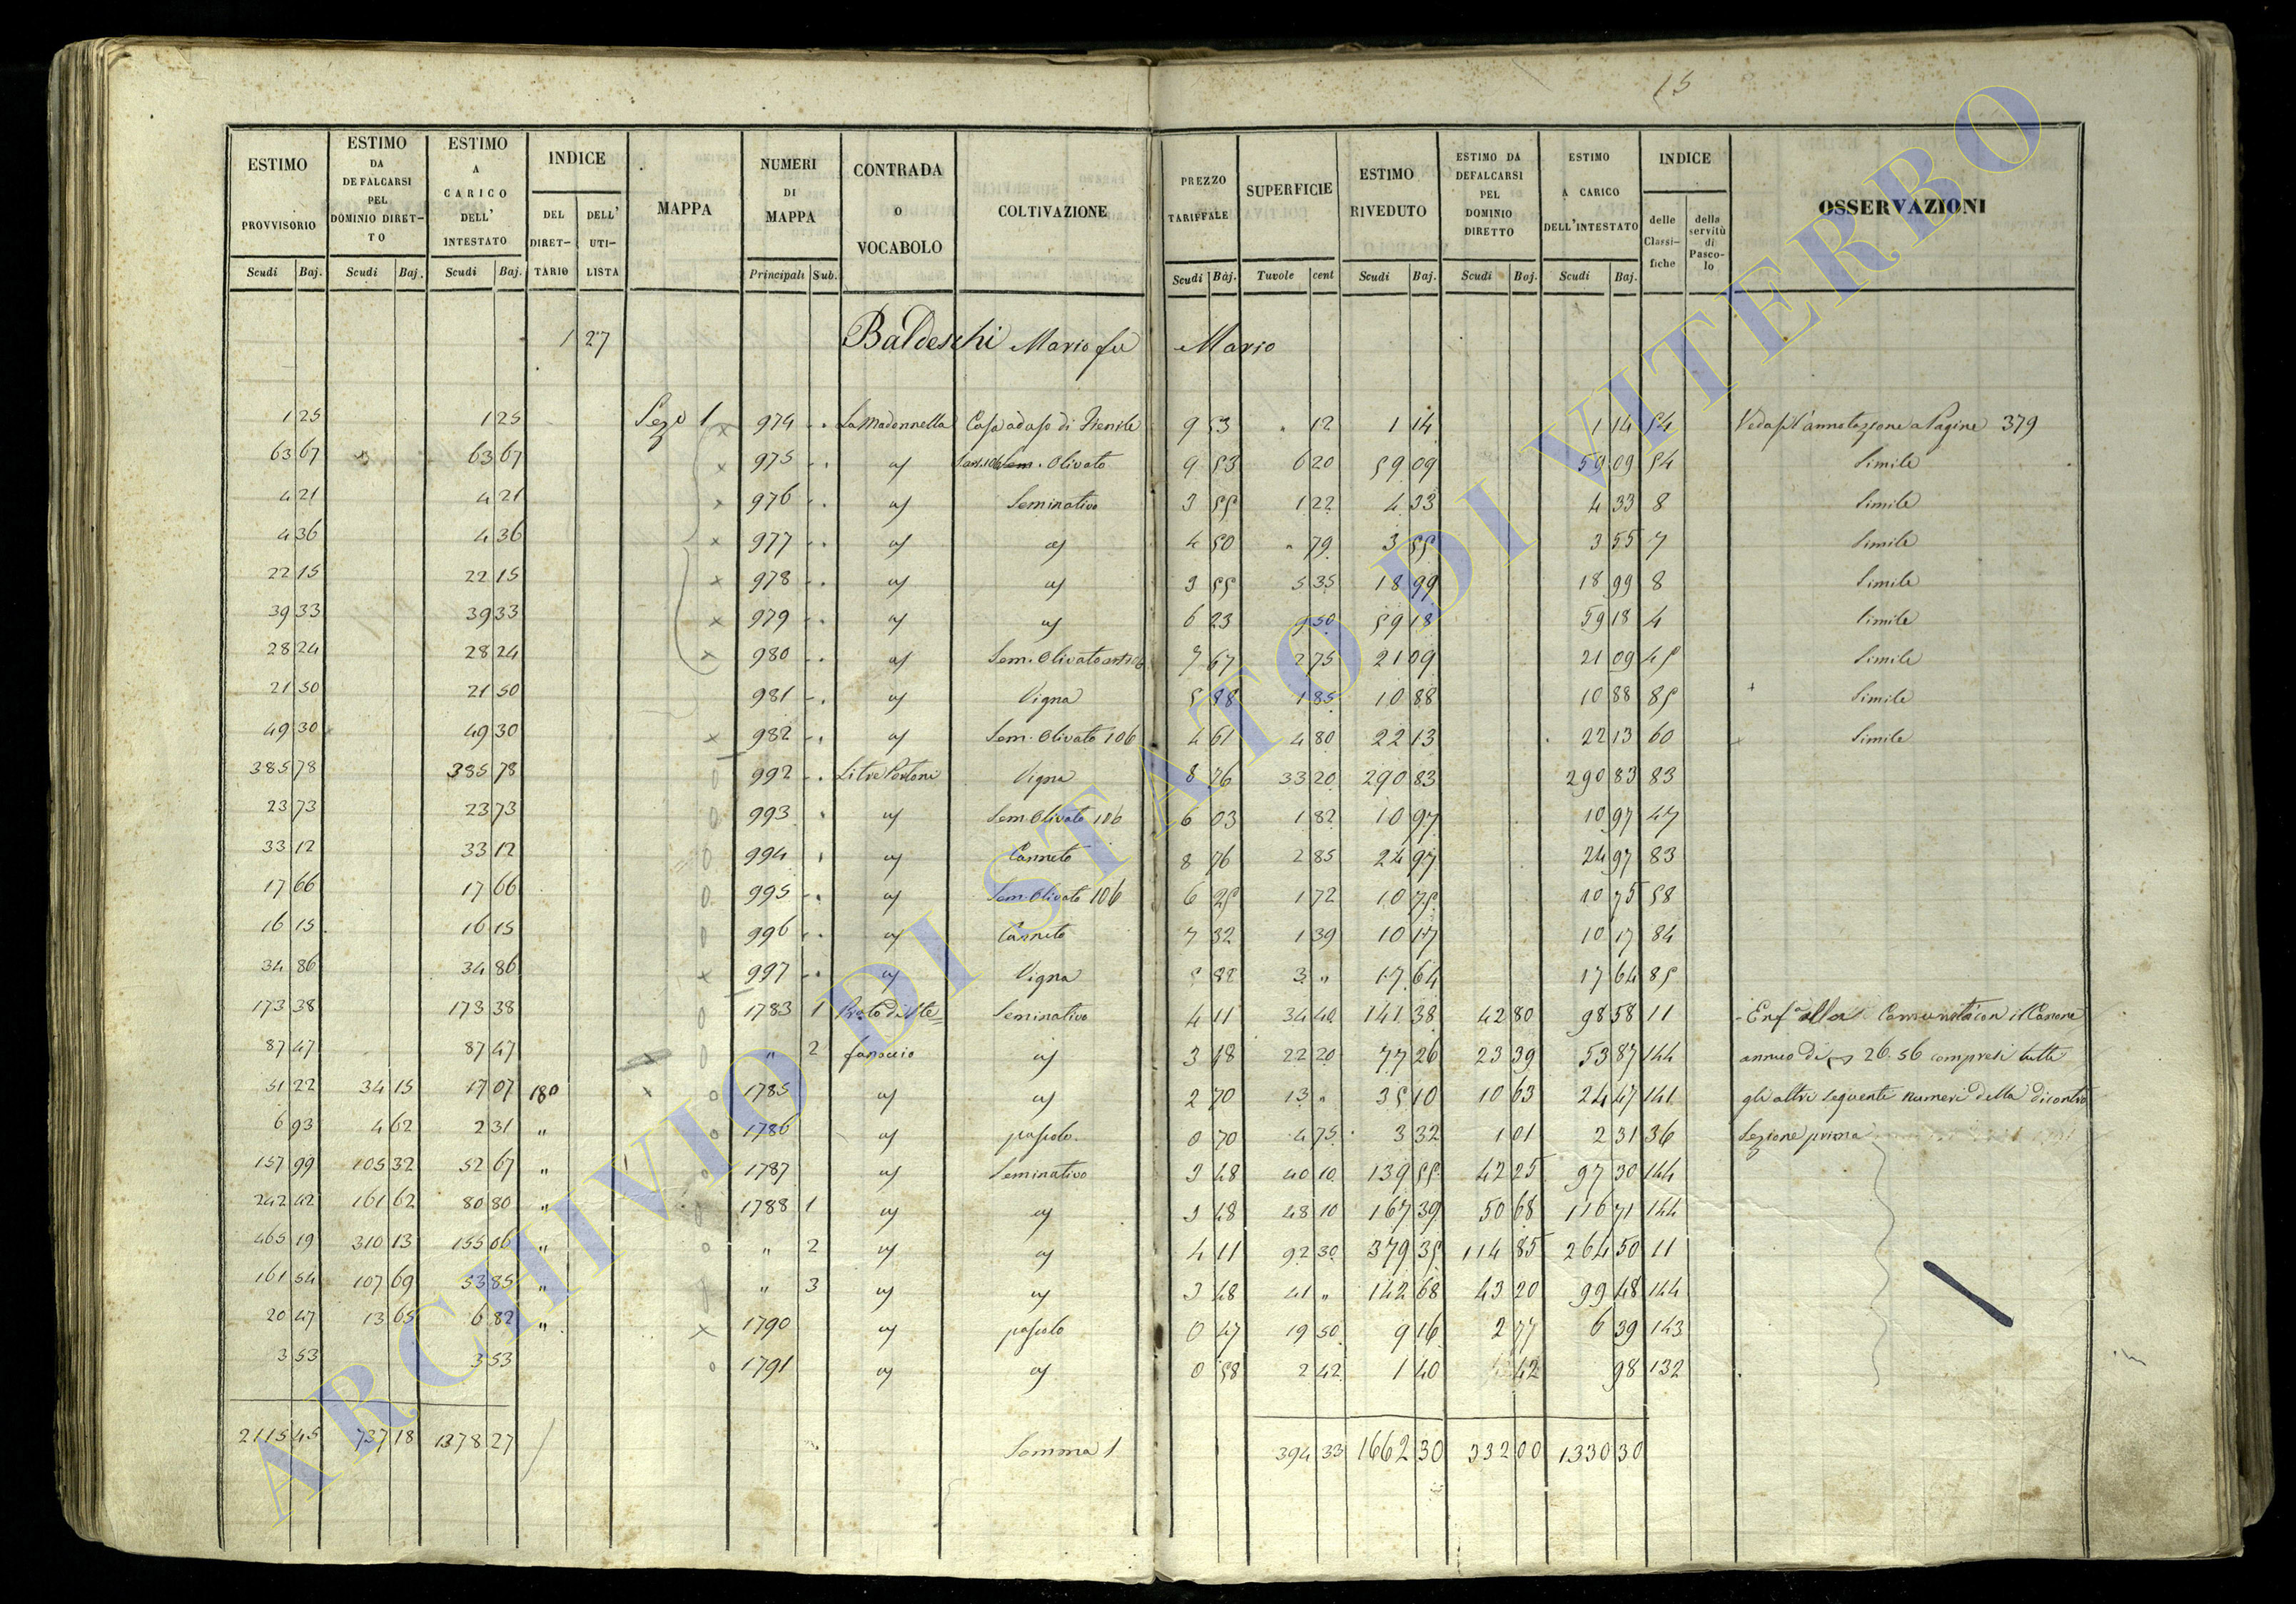 15
ESTIMO PROVVISORIO | ESTIMO DA DEFALCARSI PEL DOMINIO DIRET-TO | ESTIMO A CARICO DELL' INTESTATO | INDICE DEL DIRET-TARIO | DELL' UTI-LISTA | MAPPA | NUMERI DI MAPPA | CONTRADA O VOCABOLO | COLTIVAZIONE | PREZZO TARIFFALE | SUPERFICIE | ESTIMO RIVEDUTO | ESTIMO DA DEFALCARSI PEL DOMINIO DIRETTO | ESTIMO A CARICO DELL'INTESTATO | INDICE delle Classi-fiche | della servitù di Pasco-lo | OSSERVAZIONI
Scudi Baj. | Scudi Baj. | Scudi Baj. | Principali Sub. | Scudi Baj. | Tavole cent | Scudi Baj. | Scudi Baj. | Scudi Baj.
1 27 Baldeschi Mario fu Mario
1 25 | 1 25 | Sez.e 1 | 974 | La Madonnella | Casa ad uso di Fienile | 9 53 | " 12 | 1 14 | 1 14 | 54 | Vedasi l'annotazione a Pagine 379
63 67 | 63 67 | 975 | as | Sem. Olivato | 9 53 | 6 20 | 59 09 | 59 09 | 54 | Simile
4 21 | 4 21 | 976 | as | Seminativo | 3 55 | 1 22 | 4 33 | 4 33 | 8 | Simile
4 36 | 4 36 | 977 | as | as | 4 50 | " 79 | 3 55 | 3 55 | 7 | Simile
22 15 | 22 15 | 978 | as | as | 3 55 | 5 35 | 18 99 | 18 99 | 8 | Simile
39 33 | 39 33 | 979 | as | as | 6 23 | 9 50 | 59 18 | 59 18 | 4 | Simile
28 24 | 28 24 | 980 | as | Sem. Olivato art 106 | 7 67 | 2 75 | 21 09 | 21 09 | 45 | Simile
21 50 | 21 50 | 981 | as | Vigna | 5 88 | 1 85 | 10 88 | 10 88 | 85 | Simile
49 30 | 49 30 | 982 | as | Sem. Olivato 106 | 4 61 | 4 80 | 22 13 | 22 13 | 60 | Simile
385 78 | 385 78 | 992 | Li tre Portoni | Vigna | 8 76 | 33 20 | 290 83 | 290 83 | 83
23 73 | 23 73 | 993 | as | Sem. Olivato 106 | 6 03 | 1 82 | 10 97 | 10 97 | 47
33 12 | 33 12 | 994 | as | Canneto | 8 76 | 2 85 | 24 97 | 24 97 | 83
17 66 | 17 66 | 995 | as | Sem. Olivato 106 | 6 25 | 1 72 | 10 75 | 10 75 | 58
16 15 | 16 15 | 996 | as | Canneto | 7 32 | 1 39 | 10 17 | 10 17 | 84
34 86 | 34 86 | 997 | as | Vigna | 5 88 | 3 " | 17 64 | 17 64 | 85
173 38 | 173 38 | 1783 1 | Prato di Ste= | Seminativo | 4 11 | 34 40 | 141 38 | 42 80 | 98 58 | 11 | Enf.a alla Comunità con il Canone
87 47 | 87 47 | " 2 | fanaccio | as | 3 48 | 22 20 | 77 26 | 23 39 | 53 87 | 144 | annuo di 26.56 compresi tutti
51 22 | 34 15 | 17 07 | 180 | 1785 | as | as | 2 70 | 13 " | 35 10 | 10 63 | 24 47 | 141 | gli altri seguenti numeri della dicontro
6 93 | 4 62 | 2 31 | " | 1786 | as | pascolo | 0 70 | 4 75 | 3 32 | 1 01 | 2 31 | 36 | Sezione prima
157 99 | 105 32 | 52 67 | " | 1787 | as | Seminativo | 3 48 | 40 10 | 139 55 | 42 25 | 97 30 | 144
242 42 | 161 62 | 80 80 | " | 1788 1 | as | as | 3 48 | 48 10 | 167 39 | 50 68 | 116 71 | 144
465 19 | 310 13 | 155 06 | " | " 2 | as | as | 4 11 | 92 30 | 379 35 | 114 85 | 264 50 | 11
161 54 | 107 69 | 53 85 | " | " 3 | as | as | 3 48 | 41 " | 142 68 | 43 20 | 99 48 | 144
20 47 | 13 65 | 6 82 | " | 1790 | as | pascolo | 0 47 | 19 50 | 9 16 | 2 77 | 6 39 | 143
3 53 | 3 53 | 1791 | as | as | 0 58 | 2 42 | 1 40 | 42 | 98 | 132
2115 45 | 737 18 | 1378 27 | Somma 1 | 394 33 | 1662 30 | 332 00 | 1330 30
ARCHIVIO DI STATO DI VITERBO